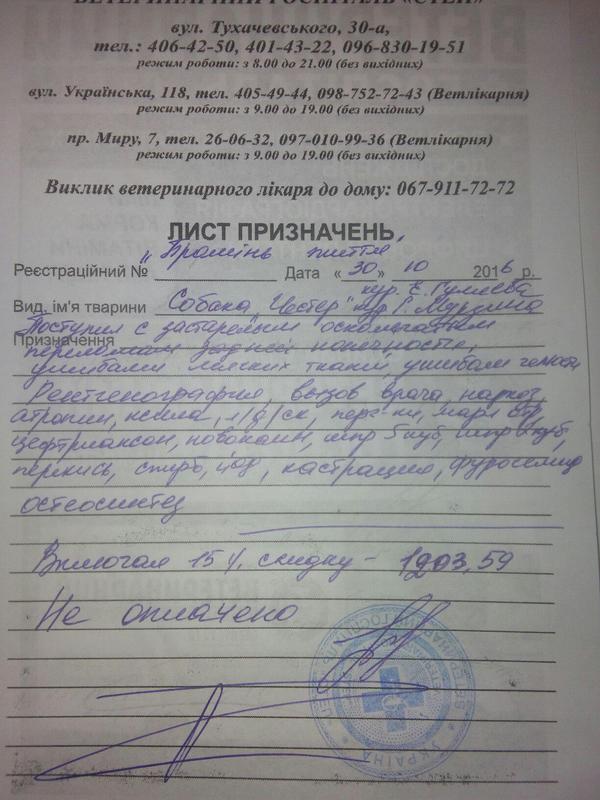 ВЕТЕРИНАРНИЙ ГОСПІТАЛЬ
вул. Тухачевського, 30-а,
тел.: 406-42-50, 401-43-22, 096-830-19-51
режим роботи: з 8.00 до 21.00 (без вихідних)
вул. Українська, 118, тел. 405-49-44, 098-752-72-43 (Ветлікарня)
режим роботи: з 9.00 до 19.00 (без вихідних)
пр. Миру, 7, тел. 26-06-32, 097-010-99-36 (Ветлікарня)
режим роботи: з 9.00 до 19.00 (без вихідних)
Виклик ветеринарного лікаря до дому: 067-911-72-72
ЛИСТ ПРИЗНАЧЕНЬ
„Промінь життя"
Реєстраційний № Дата «30» 10 2016 р.
кур. Е. Гуляева
Вид, ім'я тварини Собака "Честер" кур.
Поступил с застарелым оскольчатым
Призначення
переломом задней конечности,
ушибами мягких тканей, ушибом
Рентгенография, вызов врача, наркоз,
атропин,
цефтриаксон, новокаин, шпр 5 куб, шпр куб,
перекись, спирт, йод, кастрация, фуросемид
остеосинтез
Включая 15% скидку - 1203,59
Не оплачено
УКРАЇНА